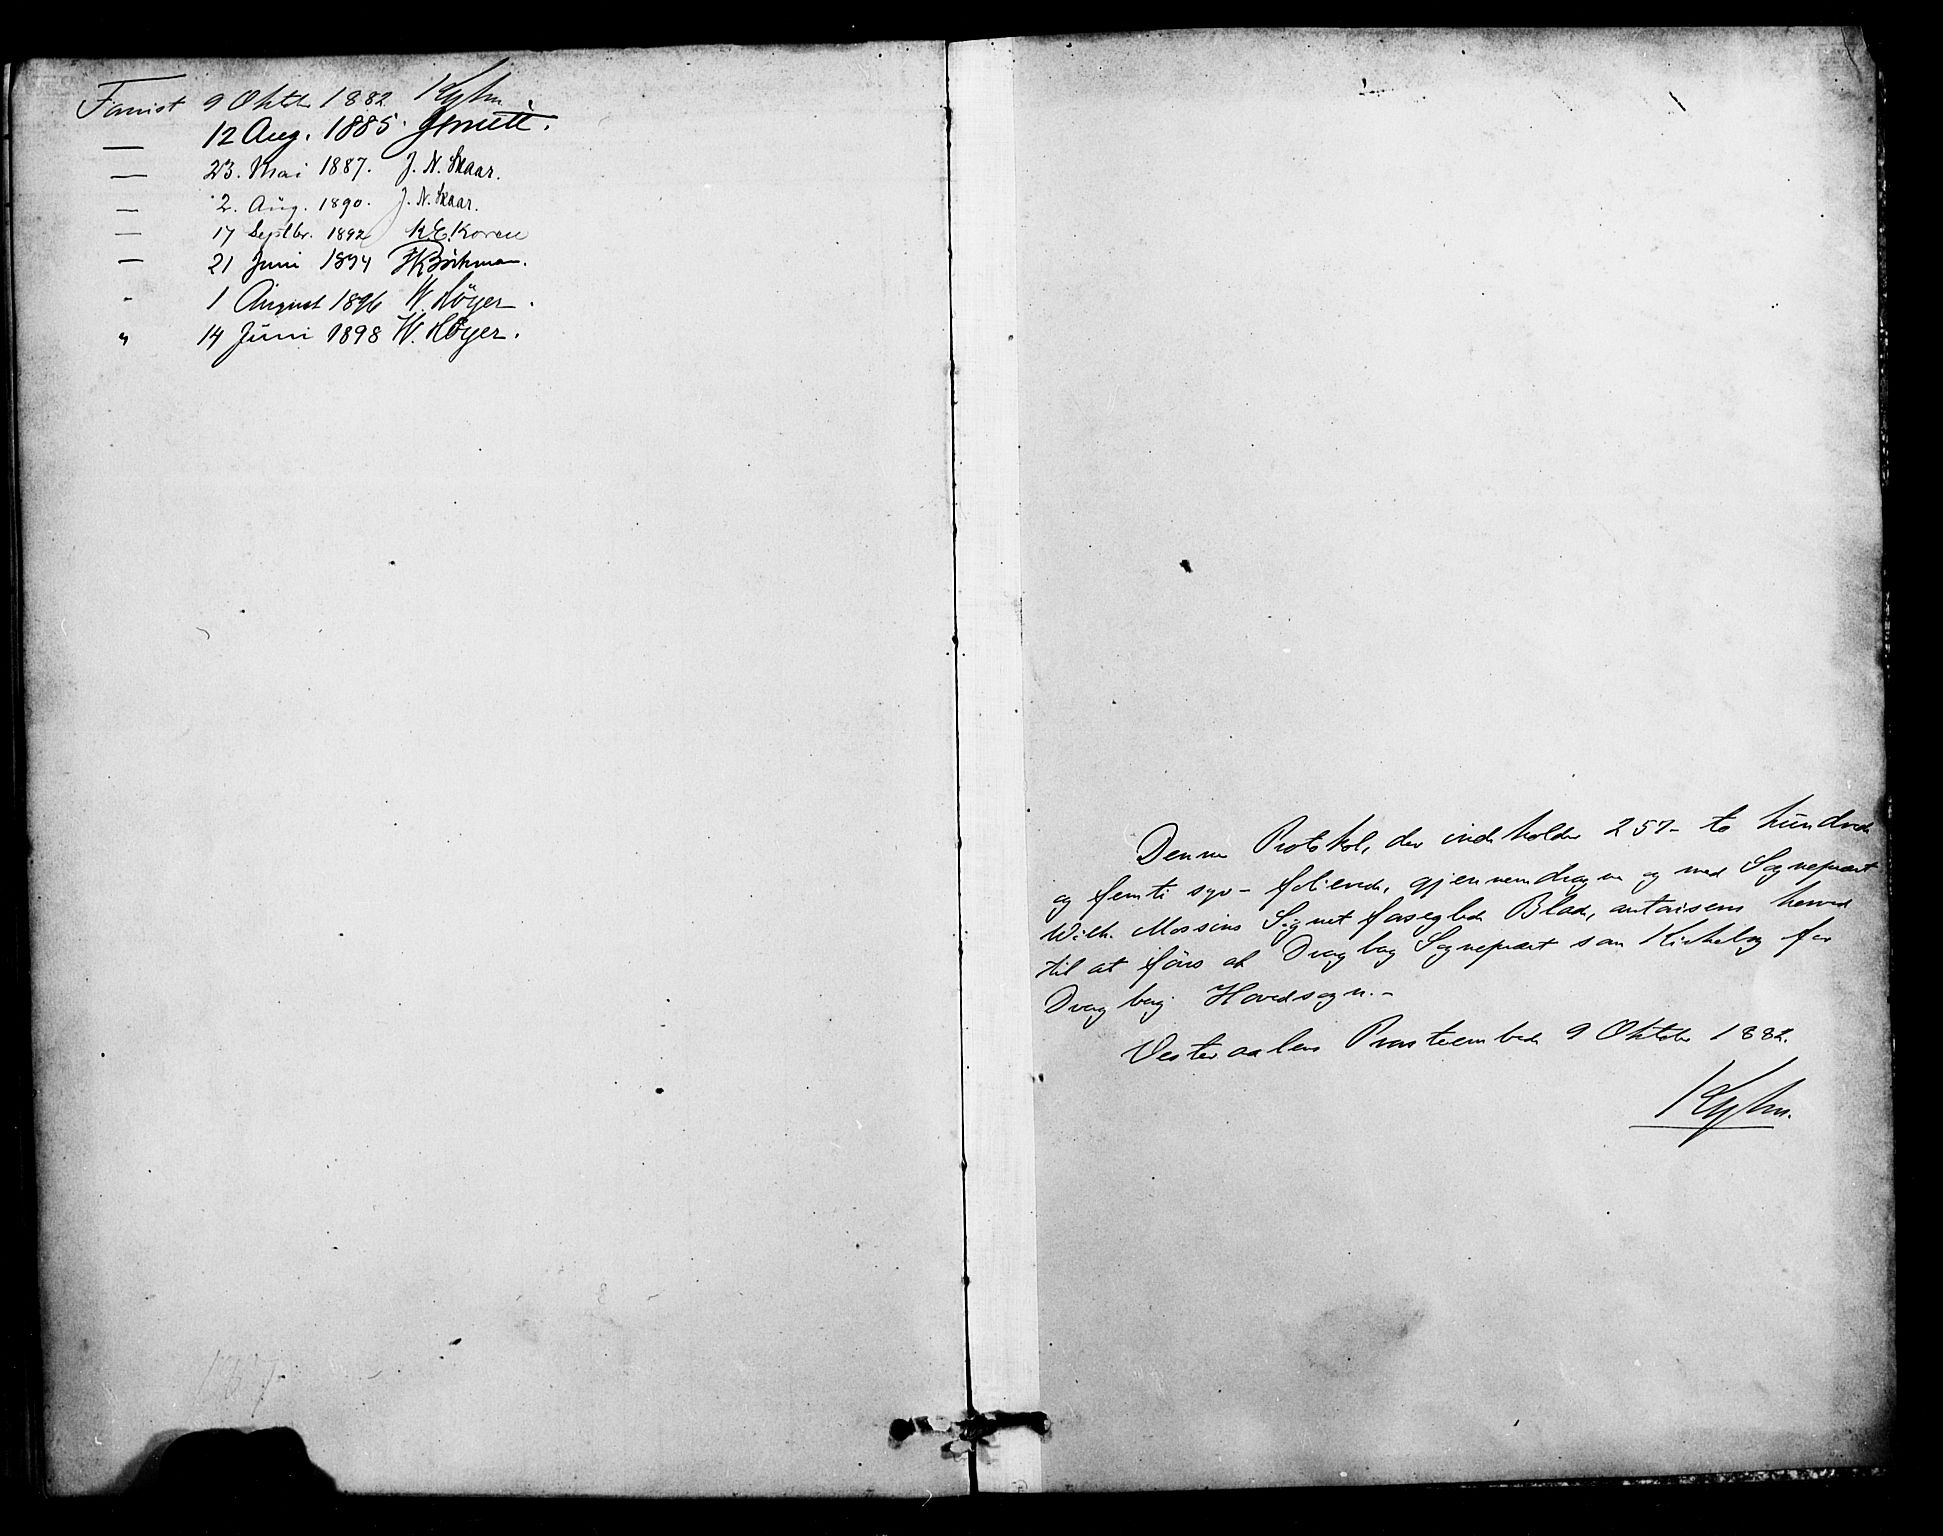 9 Oktbr 1882 Kyhn.
— 12 Aug. 1885.
— 23. Mai 1887. J. N. Skaar.
— 2. Aug. 1890. J. N. Skaar.
— 17 Septbr. 1892 K.E. Koren
— 21 Juni 1894
" 1 August 1896 W. Høyer.
" 14 Juni 1898 W. Høyer.
Denne Protokol, der indeholder 257- to hundrede
og femti syv- folierede, gjennemdragne og med Sognepræst
Wilh. Signet forseglede Blade, autoriseres herved
til at føres af Sognepræst som Kirkebog for
Hovedsogn.-
Vesteraalens Provsteembede 9 Oktober 1882.
Kyhn.